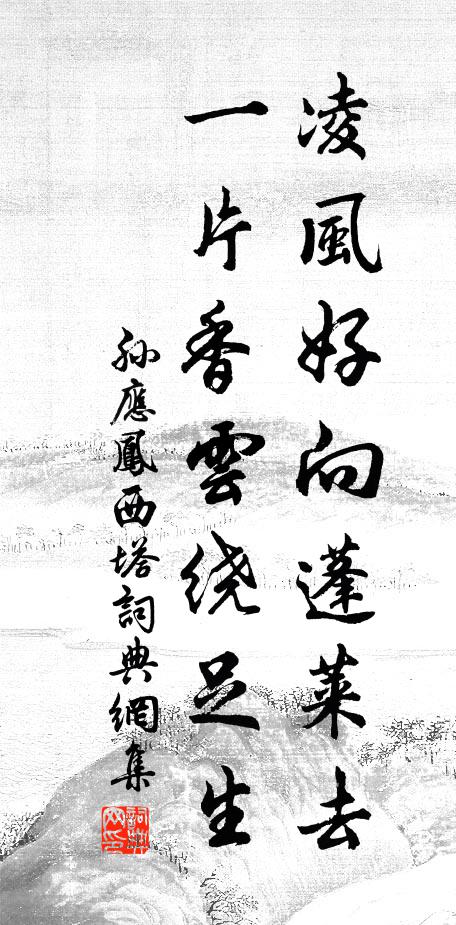 凌風好向蓬萊去
一片香雲绕足生
孙應鳳西塔詞典網集
詞典网印